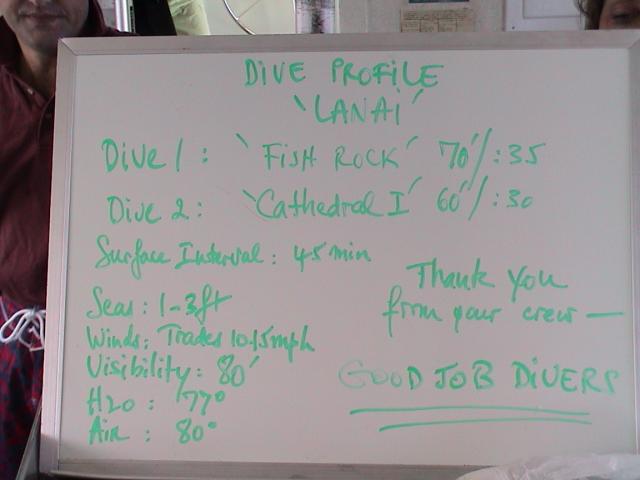 DIVE PROFILE
'LANAI'
Dive 1: 'FISH ROCK' 70'/:35
Dive 2: 'Cathedral I' 60'/:30
Surface Interval: 45 min
Seas: 1-3ft
Winds: Trades 10-15mph
Visibility: 80'
H2O: 77°
Air: 80°
Thank you
from your crew —
GOOD JOB DIVERS